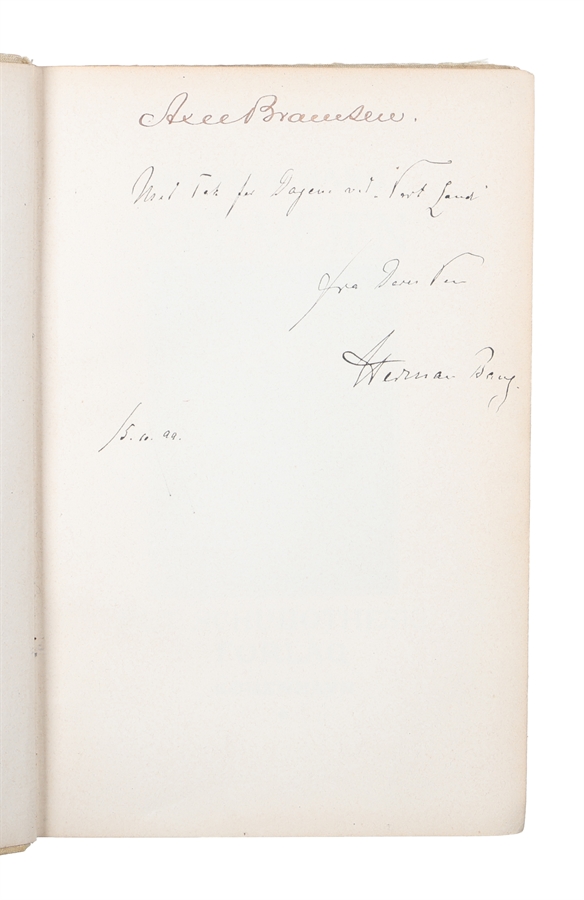 Axel Bramsen.
Med Tak for Dagene ved "Vort Land"
fra Deres Ven
Herman Bang.
15.10.99.